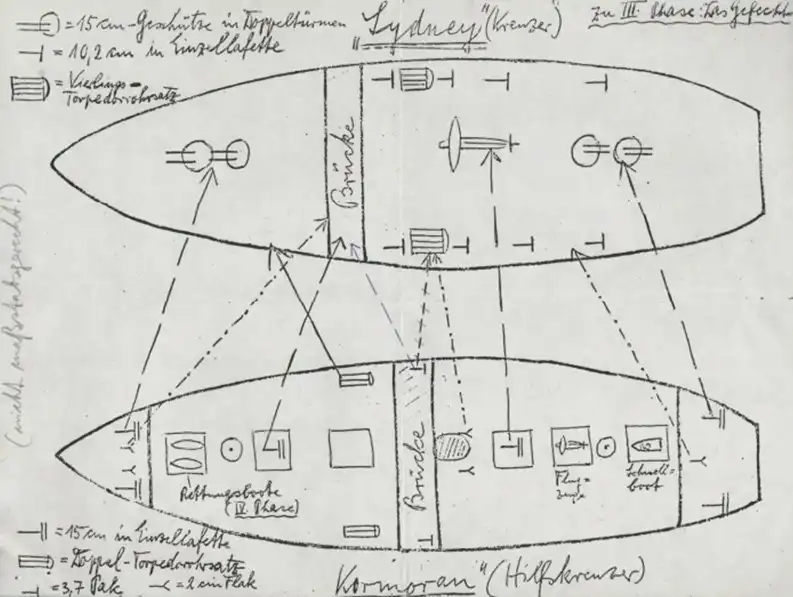 = 15 cm-Geschütze in Doppeltürmen
"Sydney" (Kreuzer)
zu III. Phase: Das Gefecht
= 10,2 cm in Einzellafette
= Vierlings-
Torpedorohrsatz
Brücke
(nicht maßstabgerecht!)
Brücke
Rettungsboote
(IV. Phase)
Flug-
zeuge
Schnell-
boot
= 15 cm in Einzellafette
= Doppel-Torpedorohrsatz
= 3,7 Pak
= 2 cm Flak
"Kormoran" (Hilfskreuzer)